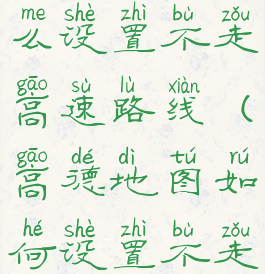 me shè zhì bù zǒu
么设置不走
gāo sù lù xiàn
高速路线（
gāo dé dì tú rú
高德地图如
hé shè zhì bù zǒu
何设置不走